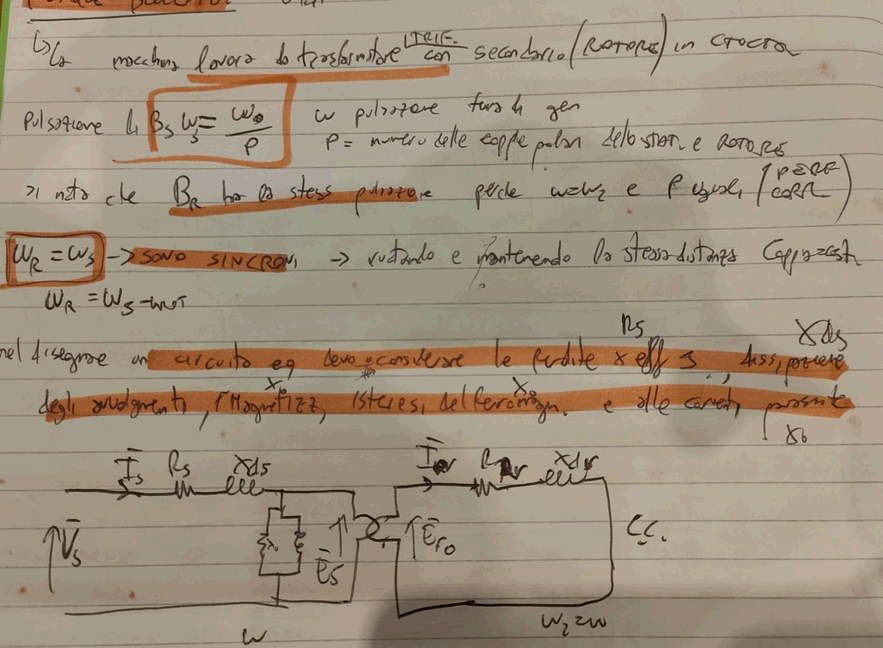 ↳ La macchina lavora da trasformatore TRIF. con secondario (ROTORE) in CTOCTO
Pulsazione di B_S ω_S = ω_0 / P   ω pulsazione di gen
P = numero delle coppie polari dello STAT. e ROTORE
Si nota che B_R ha la stess pulsazione perche ω=ω_2 e P uguali (PERF CORR)
ω_R = ω_S → SONO SINCRONI → ruotando e mantenendo la stessa distanza Coppia=cost
ω_R = ω_S - ω_ROT
R_S Xds
nel disegnare un circuito eq devo considerare le perdite x eff J, diss, potere
X_0 X_0
degli avvolgimenti, Magnetizz, Isteresi del ferromagn. e alle correnti parassite
X_0
I_S R_S Xds I_r R_r Xdr
V_S E_S E_r0 C.C.
ω ω_2=ω